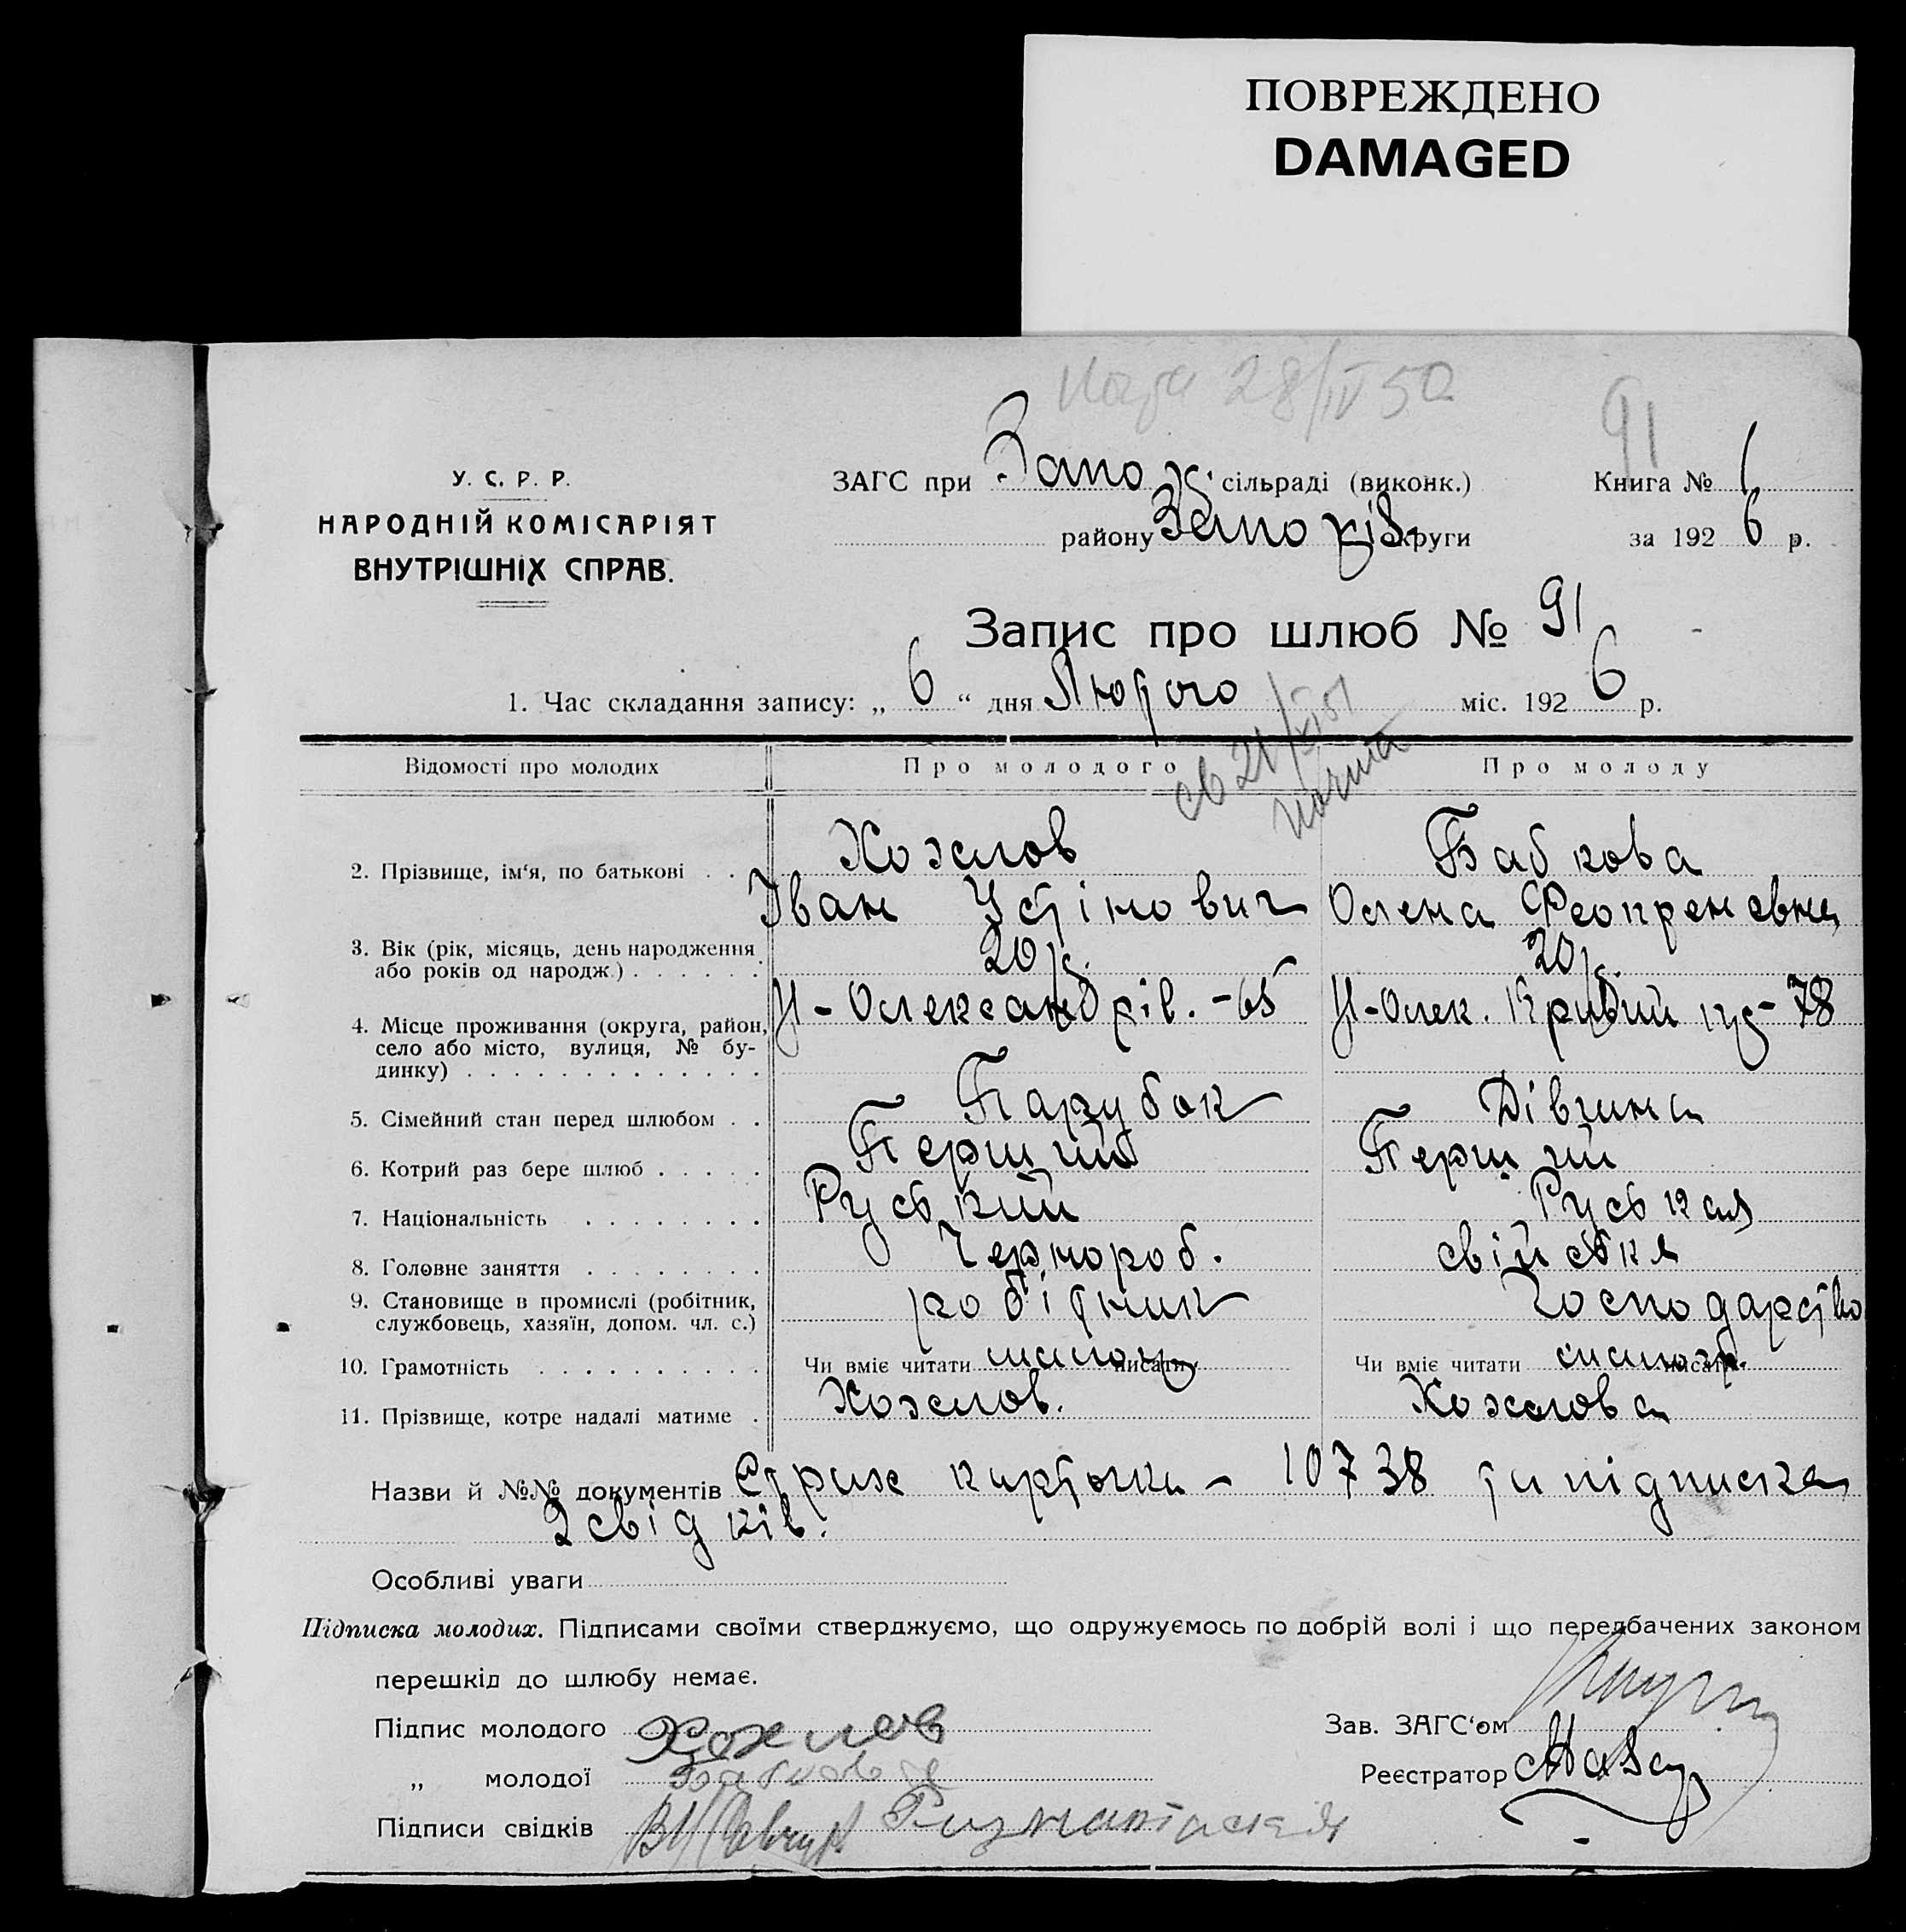 ПОВРЕЖДЕНО
DAMAGED
28/IV 50
91
У. С. Р. Р.
НАРОДНІЙ КОМІСАРІЯТ
ВНУТРІШНІХ СПРАВ.
ЗАГС при Запож. сільраді (виконк.)
Книга № 1
району Запоріз. округи
за 1926 р.
Запис про шлюб № 91
1. Час складання запису: „ 6 “ дня Лютого міс. 1926 р.
св 21/XI 51
Відомості про молодих
Про молодого
Про молоду
2. Прізвище, ім‘я, по батькові . .
Хохлов
Іван Устінович
Бабкова
Олена
3. Вік (рік, місяць, день народження або років од народж.) . . . . . .
20 р.
20 р.
4. Місце проживання (округа, район, село або місто, вулиця, № будинку) . . . . . . . . . . . . .
Н-Олександрів. - 65
Н-Олек. Кривий - 78
5. Сімейний стан перед шлюбом . .
Парубок
Дівчина
6. Котрий раз бере шлюб . . . . .
Перший
Перший
7. Національність . . . . . . . .
Руський
Руськая
8. Головне заняття . . . . . . . .
Чернороб.
свійське
9. Становище в промислі (робітник, службовець, хазяїн, допом. чл. с.)
робітник
господарство
10. Грамотність . . . . . . . . . .
Чи вміє читати писати
Чи вміє читати писати
11. Прізвище, котре надалі матиме .
Хохлов.
Хохлова
Назви й №№ документів Страх карточка - 10738 та підписка
2 свідків.
Особливі уваги
Підписка молодих. Підписами своїми стверджуємо, що одружуємось по добрій волі і що передбачених законом
перешкід до шлюбу немає.
Підпис молодого Хохлов
Зав. ЗАГС‘ом
„ молодої Бабкова
Реєстратор
Підписи свідків